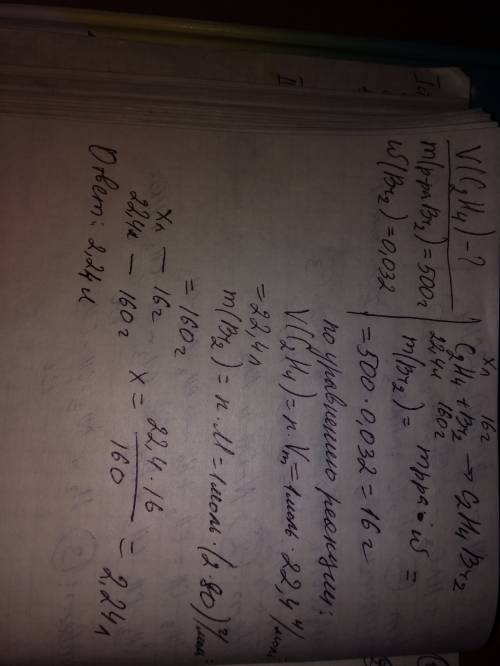 V(C₂H₄) - ?
m(p-pa Br₂) = 500г
W(Br₂) = 0,032
xл 16г
C₂H₄ + Br₂ → C₂H₄Br₂
22,4л 160г
m(Br₂) = mр-ра · ω =
= 500 · 0,032 = 16г
по уравнению реакции:
V(C₂H₄) = n · Vm = 1моль · 22,4 л/моль
= 22,4л
m(Br₂) = n · M = 1моль · (2·80) г/моль =
= 160г
xл — 16г
22,4л — 160г
x = 22,4 · 16 / 160 = 2,24л
Ответ: 2,24л